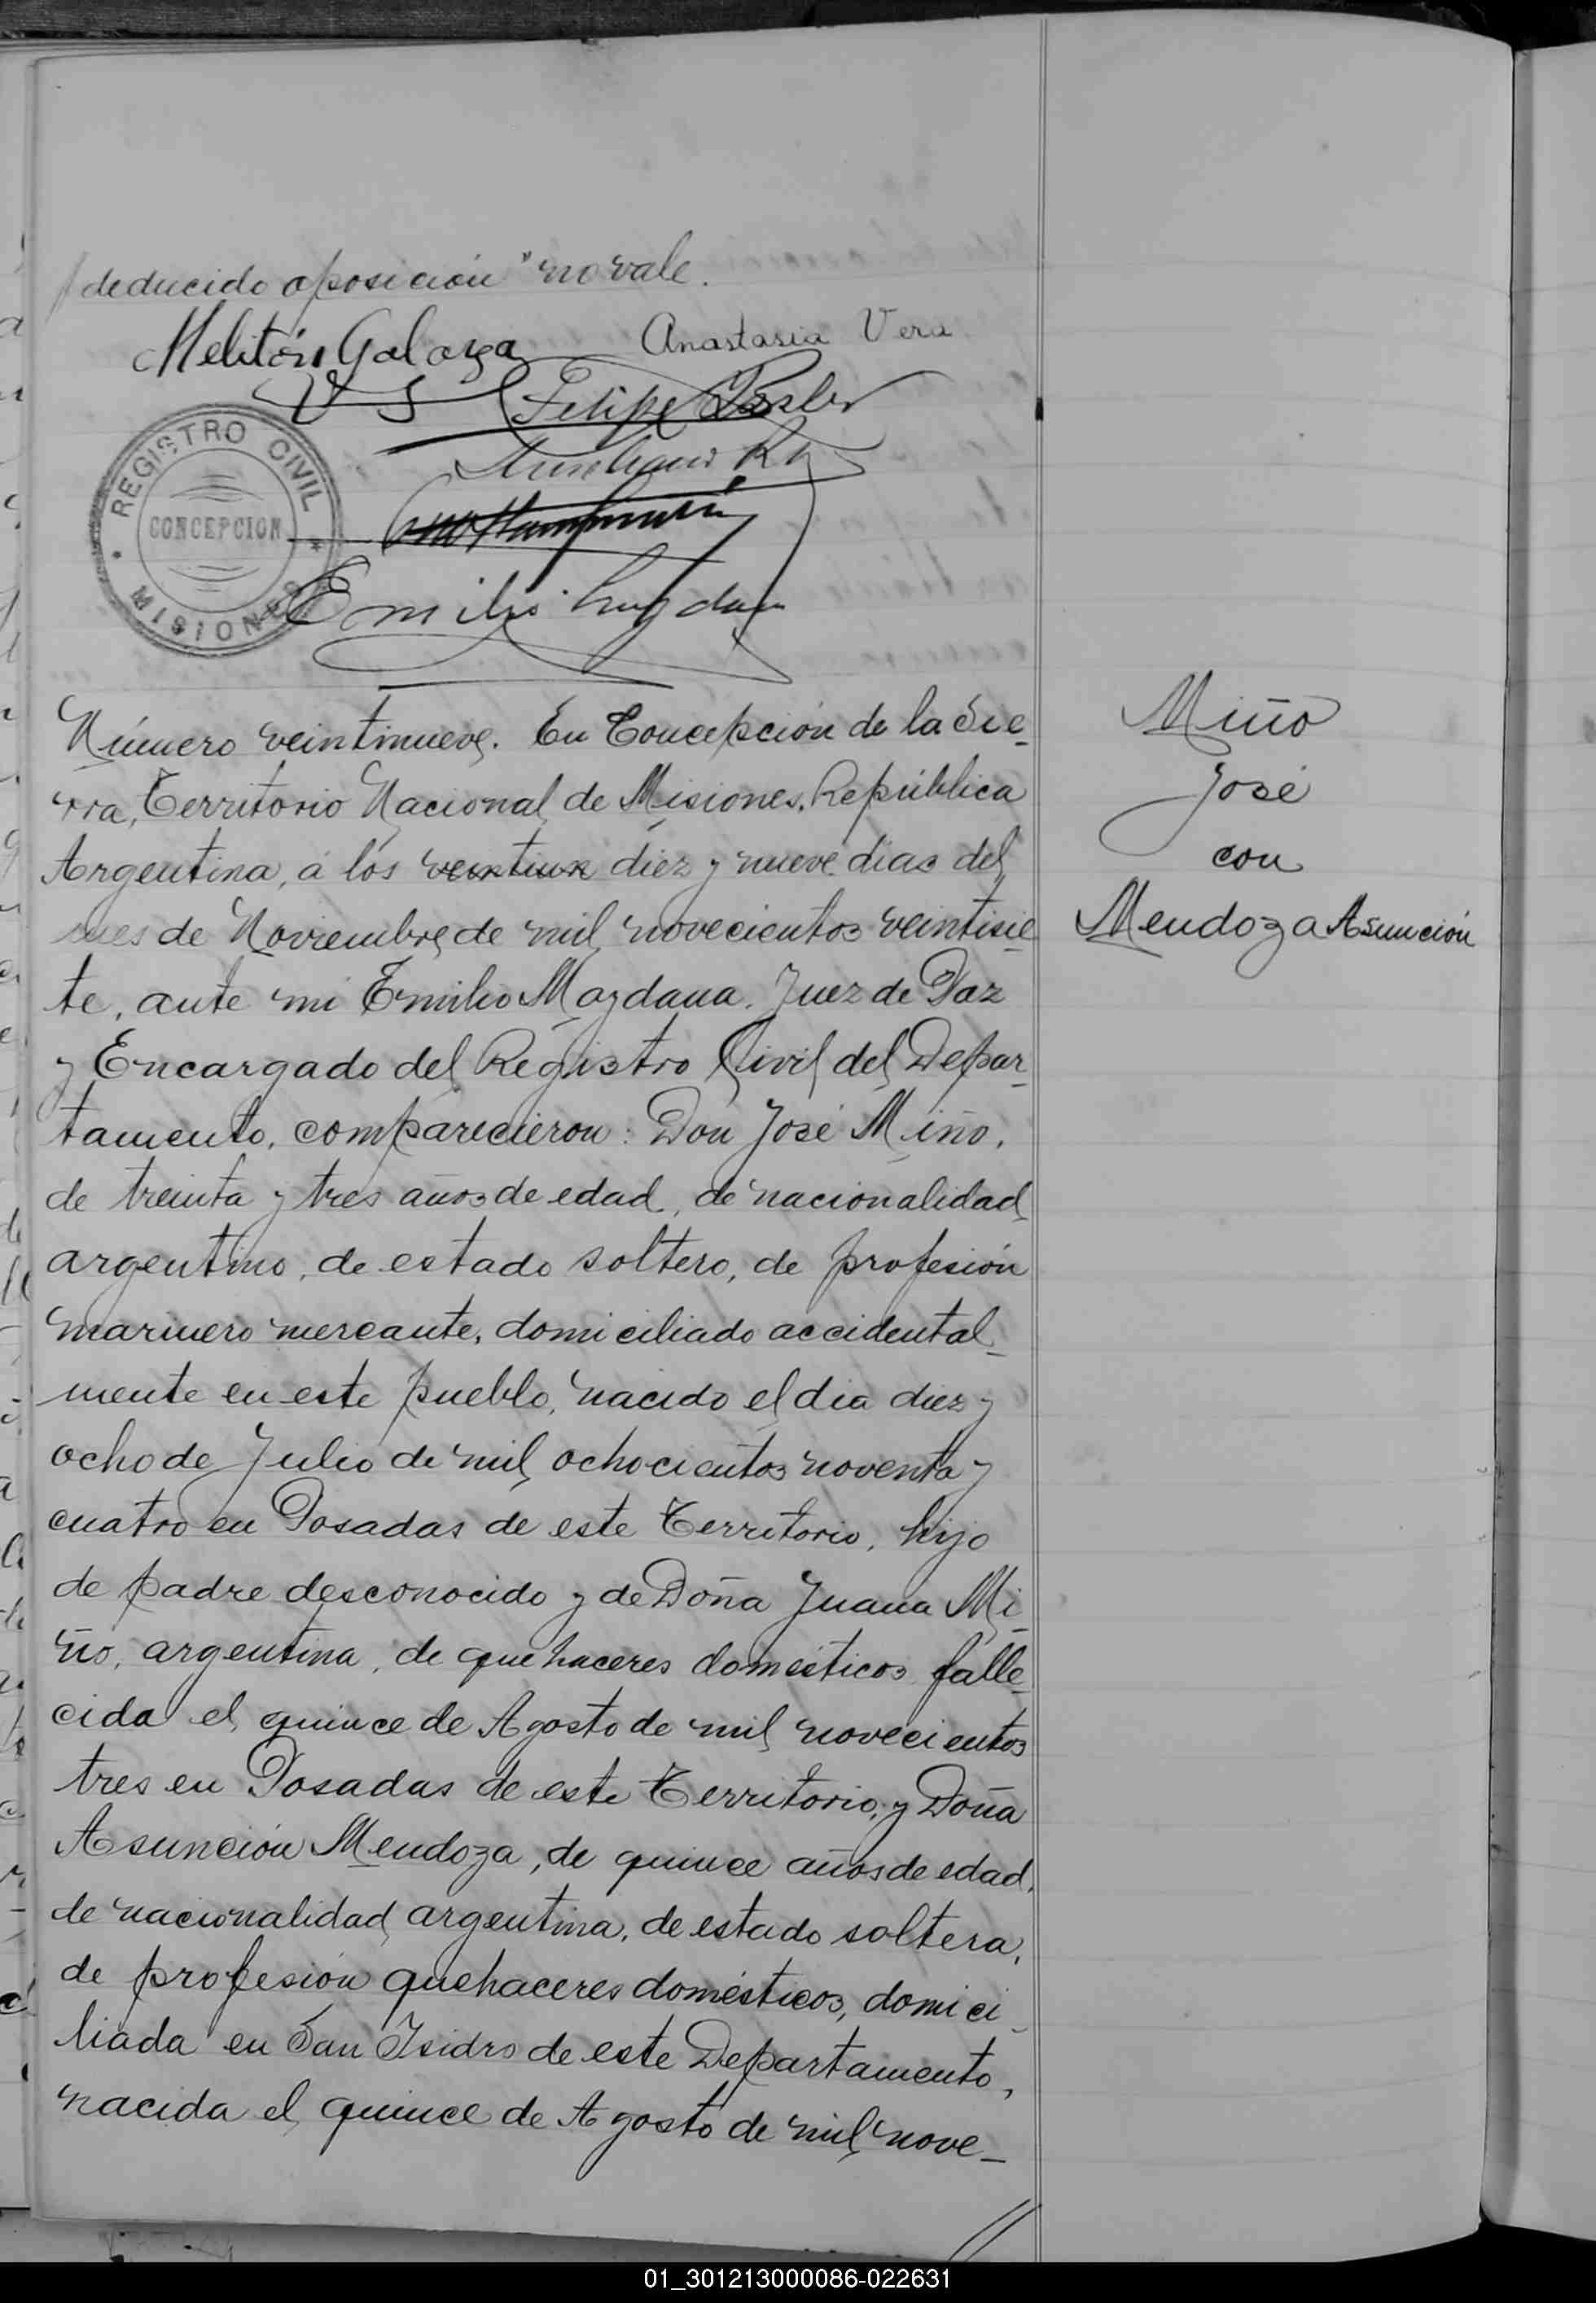 deducido oposición" no vale.
Melitón Galarza
Anastasia Vera
Felipe
REGISTRO CIVIL
CONCEPCION
MISIONES
Emilio
Número veintinueve. En Concepción de la Sie-
rra, Territorio Nacional de Misiones, República
Argentina, á los veintiun diez y nueve dias del
mes de Noviembre de mil novecientos veintisie-
te, ante mi Emilio Magdana. Juez de Paz
y Encargado del Registro Civil del Depar-
tamento, comparecieron: Don José Miño,
de treinta y tres años de edad, de nacionalidad
argentino, de estado soltero, de profesión
marinero mercante, domiciliado accidental-
mente en este pueblo, nacido el dia diez y
ocho de Julio de mil ochocientos noventa y
cuatro en Posadas de este Territorio, hijo
de padre desconocido y de Doña Juana Mi-
ño, argentina, de quehaceres domésticos, falle-
cida el quince de Agosto de mil novecientos
tres en Posadas de este Territorio; y Doña
Asunción Mendoza, de quince años de edad,
de nacionalidad argentina, de estado soltera,
de profesión quehaceres domésticos, domici-
liada en San Isidro de este Departamento,
nacida el quince de Agosto de mil nove-
//
Miño
José
con
Mendoza Asunción
01_301213000086-022631